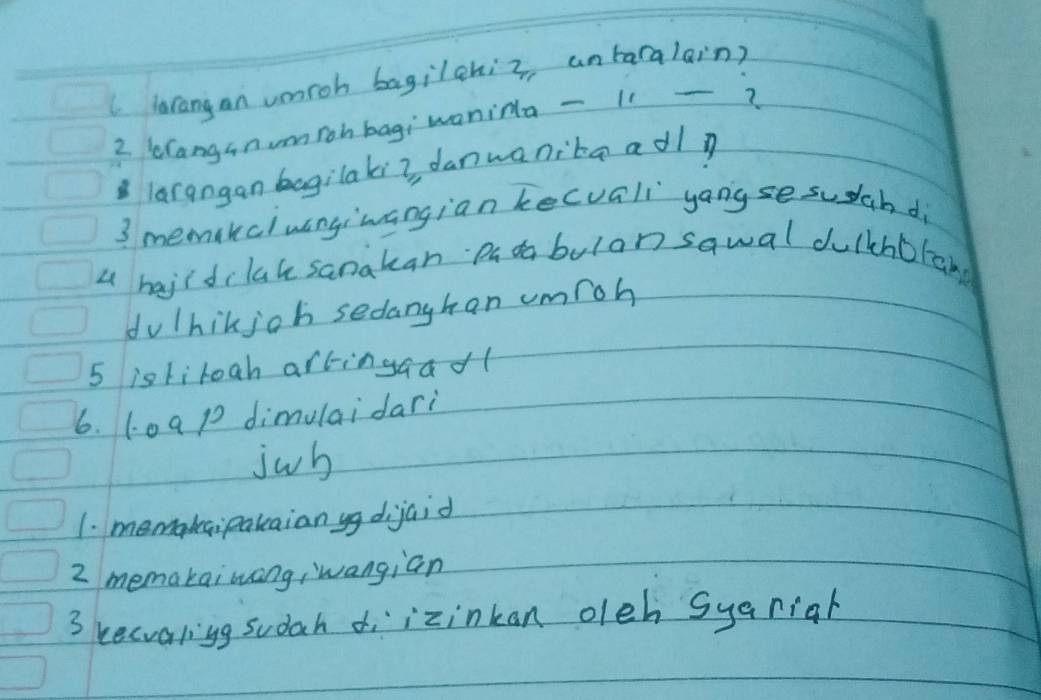 1. larangan umroh bagilaki2, antaralain?
2 laranganumrohbagi waninta - 11 - ?
larangan bagilaki2, danwanita adl
3 memakai wangiwangian kecuali yang sesudah di
4 haji dilaksanakan pada bulan sawal dulkhokah
dulhikjoh sedangkan umroh
5 istitoah artinya adl
6. toap dimulai dari
jwb
1. memakaipakaian yg dijaid
2 memakaiwangiwangian
3 kecualiyg sudah di izinkan oleh Syariat